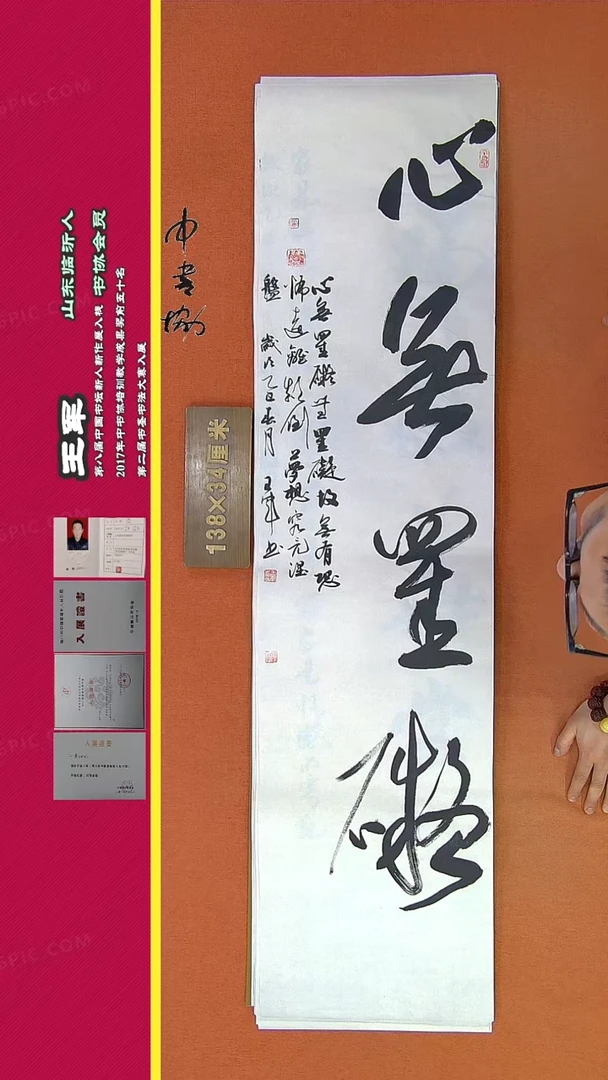 心無罣礙
心無罣礙 無罣礙 故無有恐
怖 遠離顛倒夢想 究竟涅
槃 歲次乙巳春月 王軍書
中書協
138×34厘米
山东临沂人
书协会员
王军
第八届中国书坛新人新作展入展
2017年中书协培训教学成果奖前五十名
第二届书圣书法大赛入展
入展證書